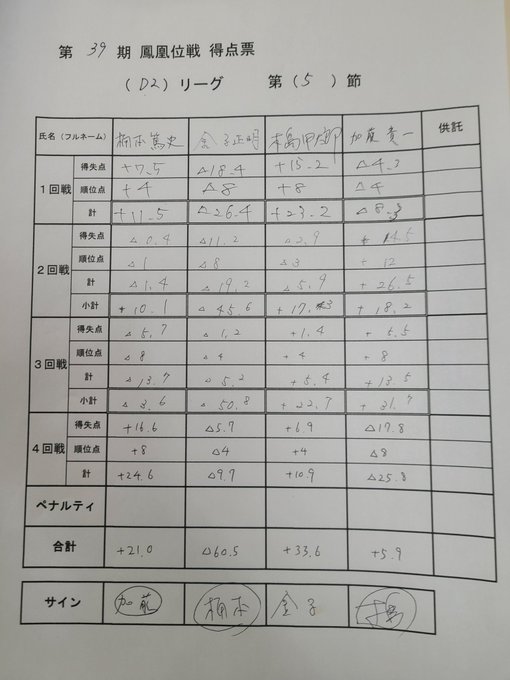 第 39 期 鳳凰位戦 得点票
(D2) リーグ 第 (5) 節
氏名 (フルネーム) 桶本篤史 金子正明 加藤貴一 供託
1回戦
得失点 +7.5 △18.4 +15.2 △4.3
順位点 +4 △8 +8 △4
計 +11.5 △26.4 +23.2 △8.3
2回戦
得失点 △0.4 △11.2 △2.9 +14.5
順位点 △1 △8 △3 +12
計 △1.4 △19.2 △5.9 +26.5
小計 +10.1 △45.6 +17.3 +18.2
3回戦
得失点 △5.7 △1.2 +1.4 +5.5
順位点 △8 △4 +4 +8
計 △13.7 △5.2 +5.4 +13.5
小計 △3.6 △50.8 +22.7 +31.7
4回戦
得失点 +16.6 △5.7 +6.9 △17.8
順位点 +8 △4 +4 △8
計 +24.6 △9.7 +10.9 △25.8
ペナルティ
合計 +21.0 △60.5 +33.6 +5.9
サイン 加藤 桶本 金子